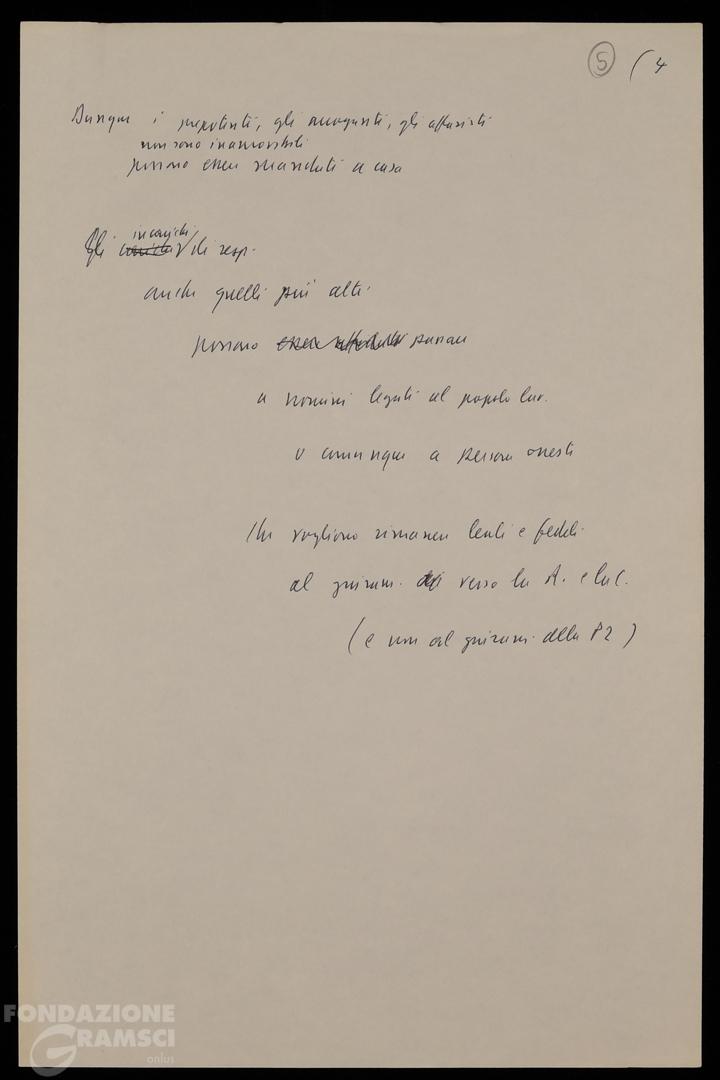 5 (4
Dunque i prepotenti, gli arroganti, gli affaristi
non sono inamovibili
possono essere mandati a casa
incarichi
Gli di resp.
anche quelli più alti
possono essere affidati passare
a uomini legati al popolo lav.
o comunque a persone oneste
che vogliono rimanere leali e fedeli
al giuram. verso la R. e la C.
(e non al giuram. della P2)
FONDAZIONE
GRAMSCI
onlus